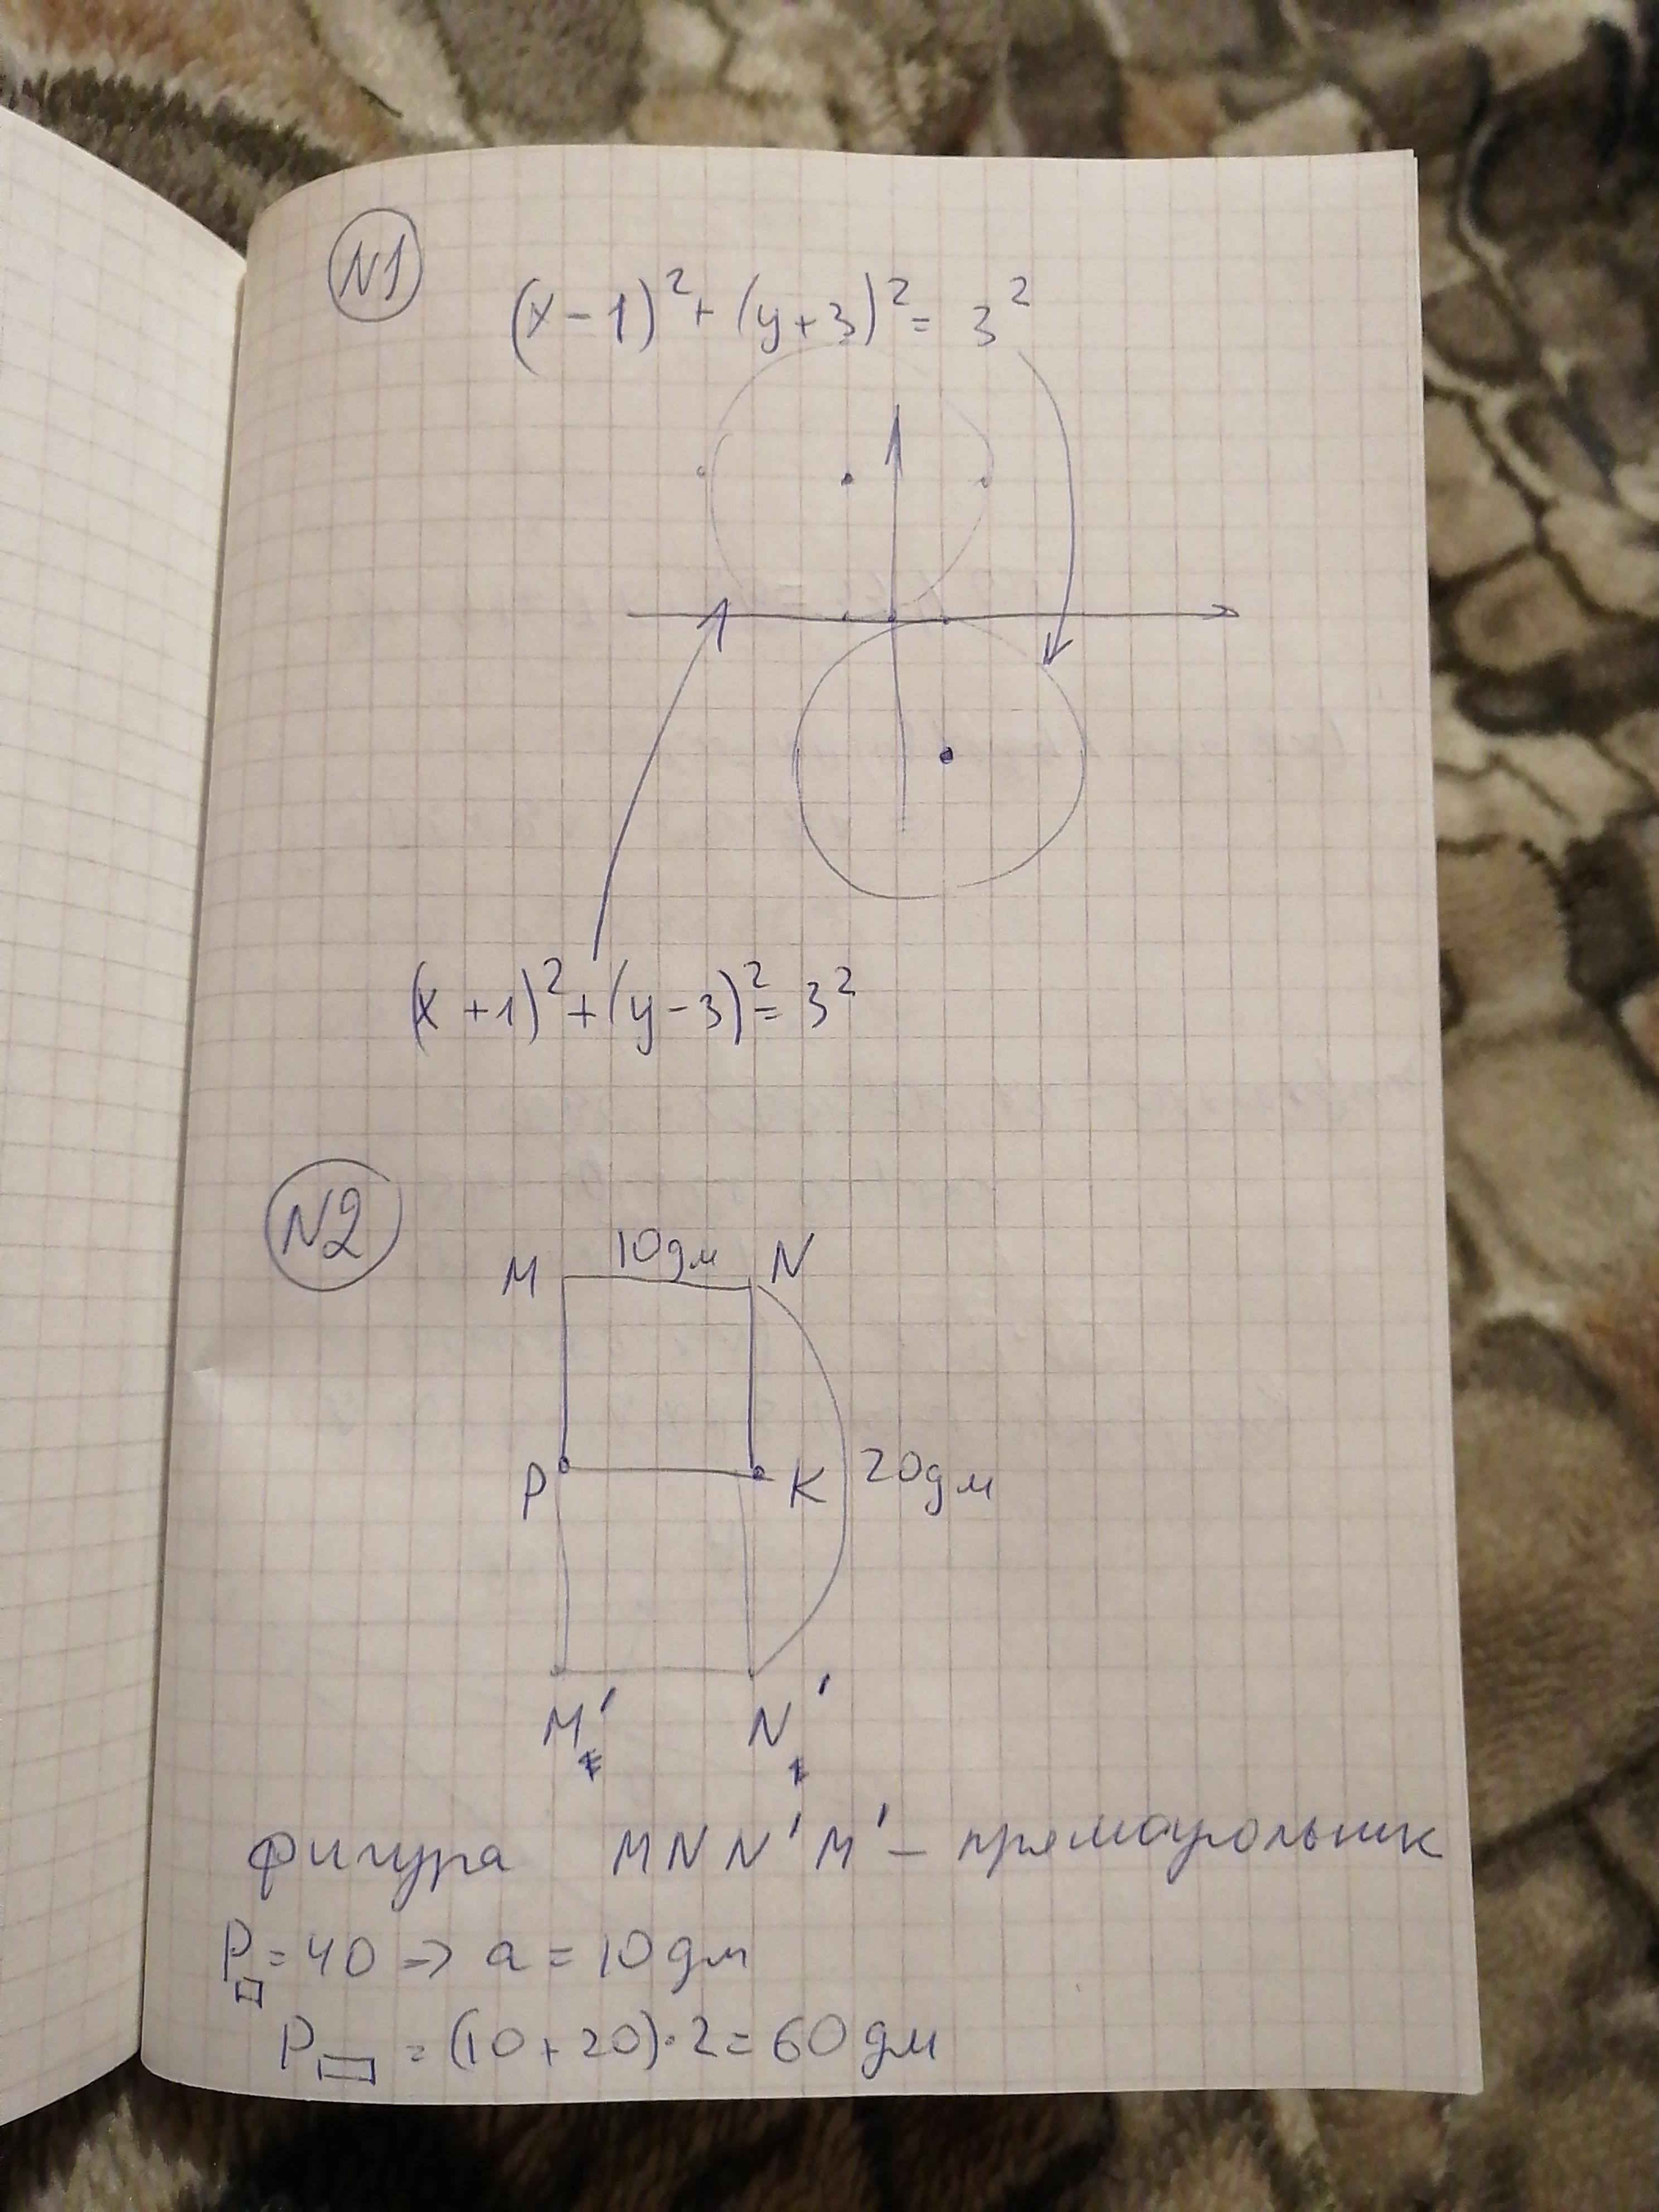 N1
(x-1)² + (y+3)² = 3²
(x+1)² + (y-3)² = 3²
N2
M 10дм N
P K 20дм
M' N'
фигура MNN'M' - прямоугольник
P□ = 40 => a = 10дм
P▭ = (10+20)·2 = 60дм